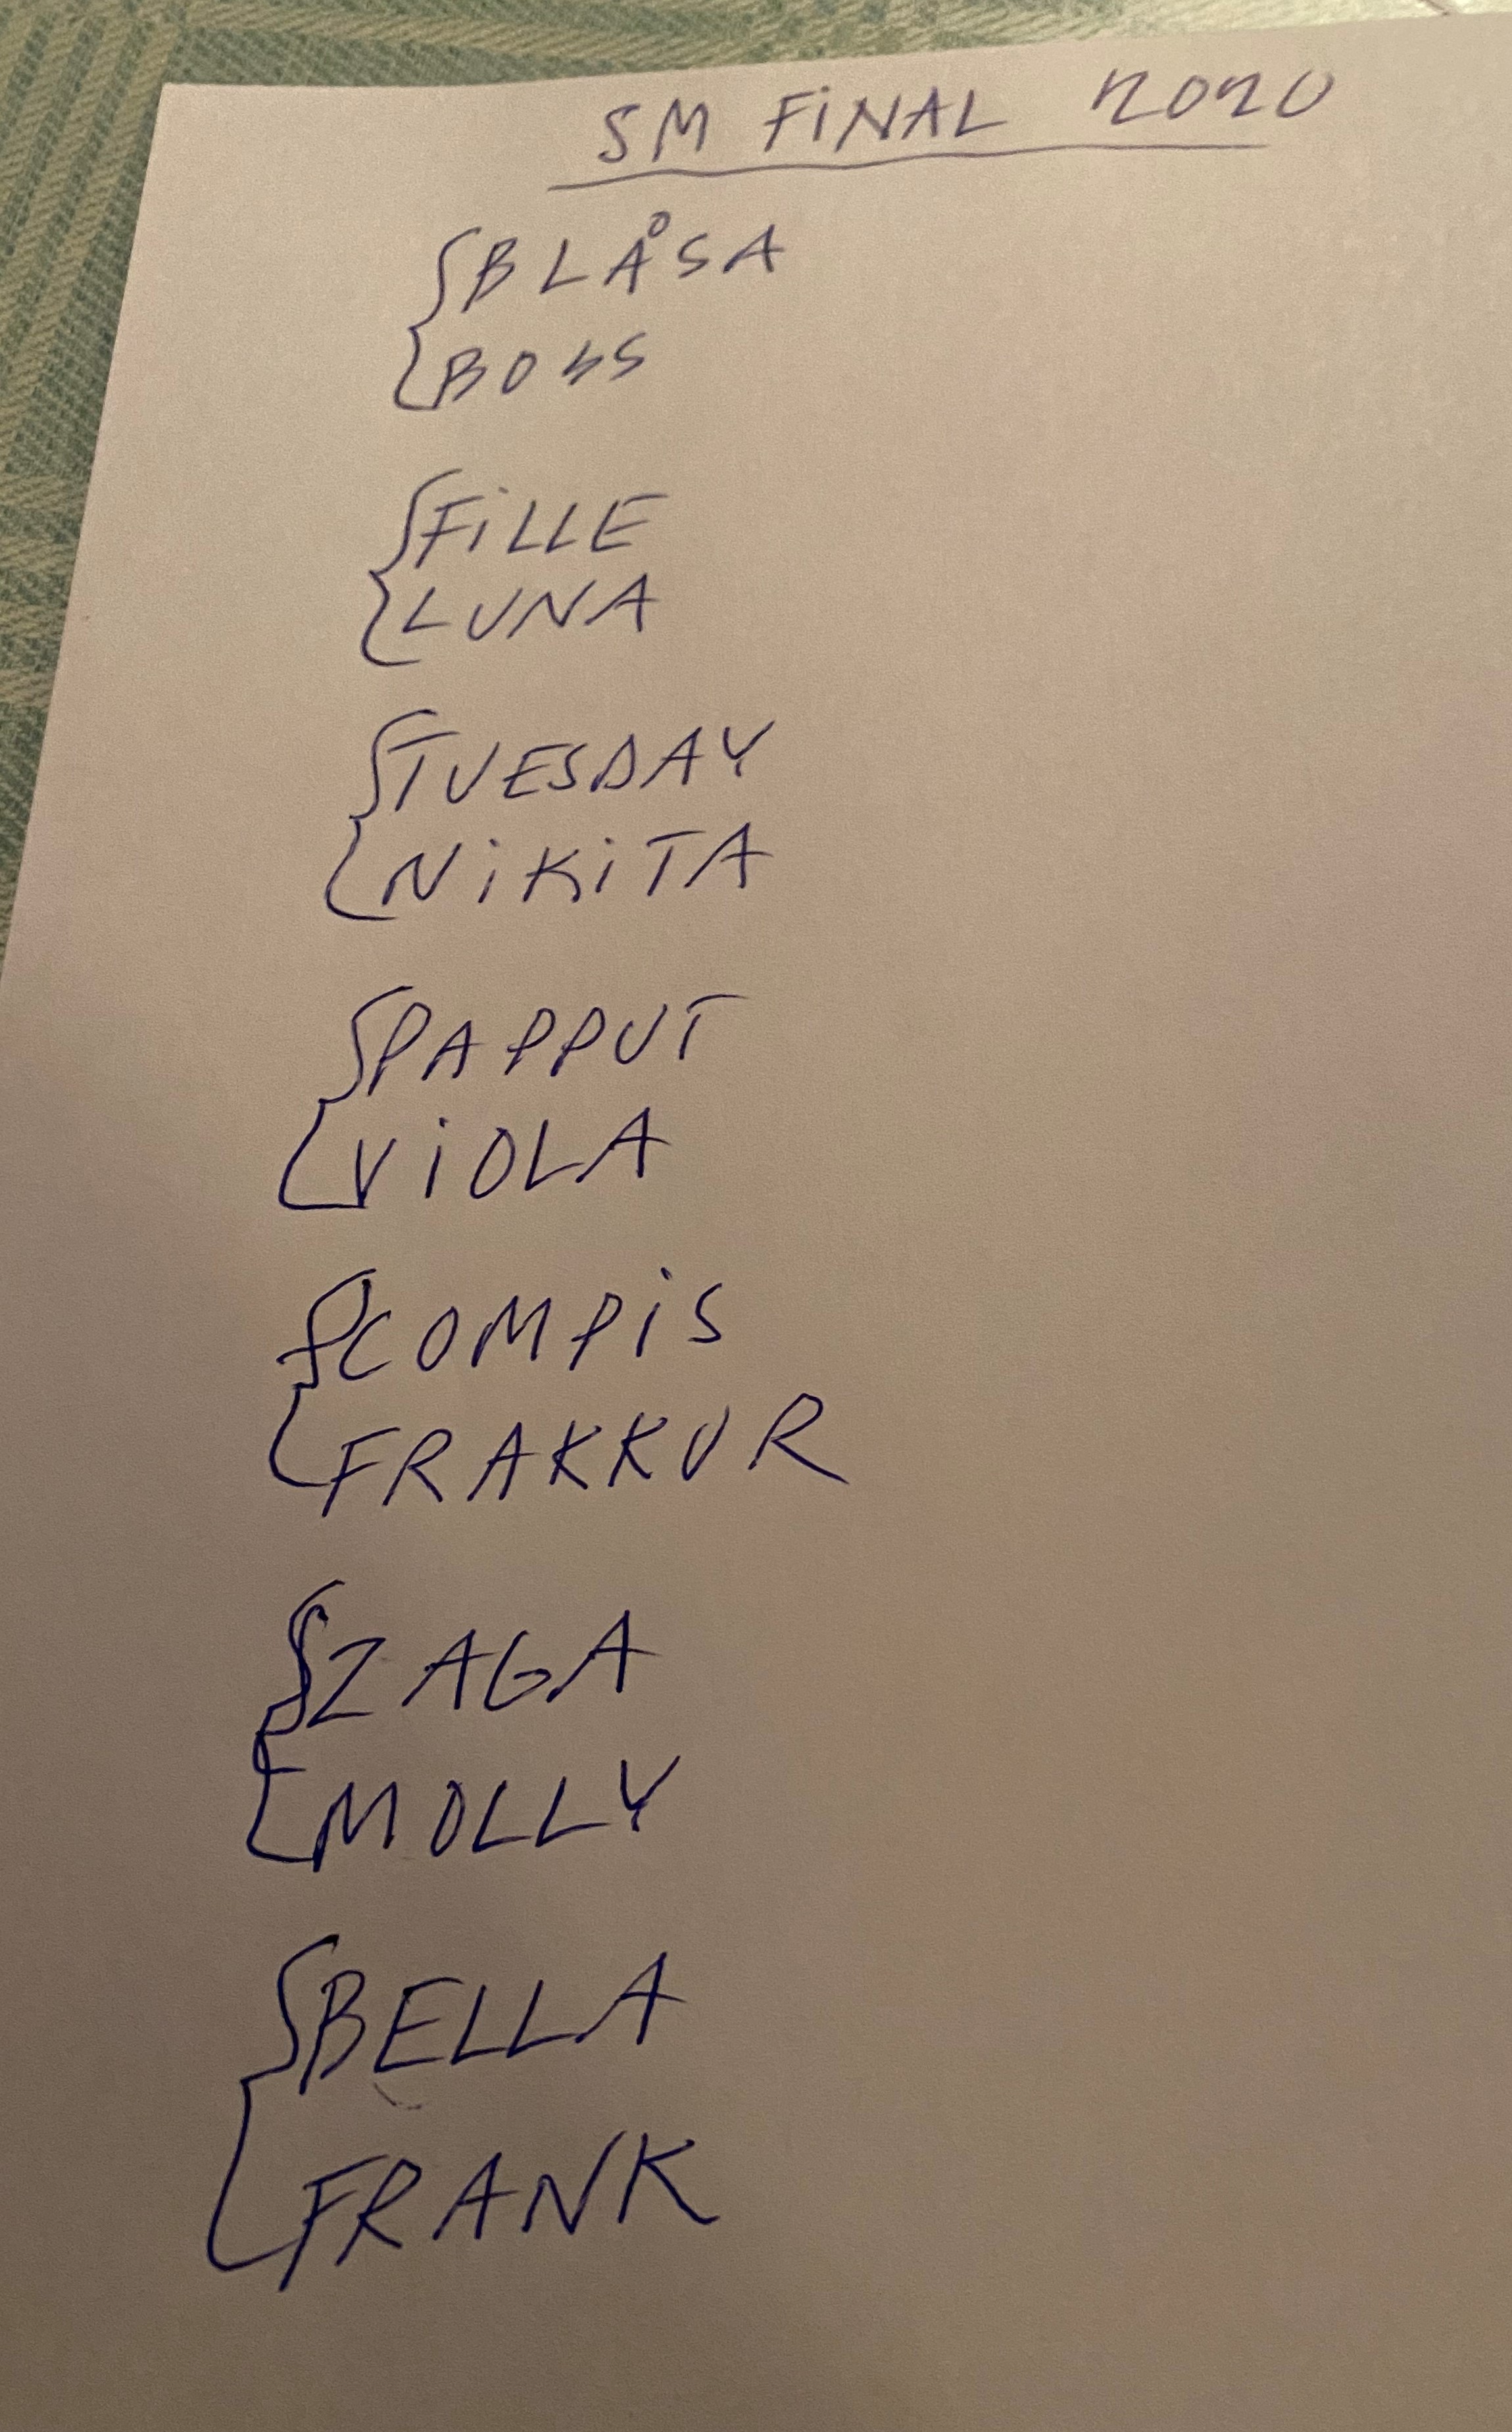 SM FiNAL 2020
BLÅSA
BOSS
FiLLE
LUNA
TUESDAY
NiKiTA
PAPPUT
ViOLA
COMPiS
FRAKKUR
ZAGA
MOLLY
BELLA
FRANK